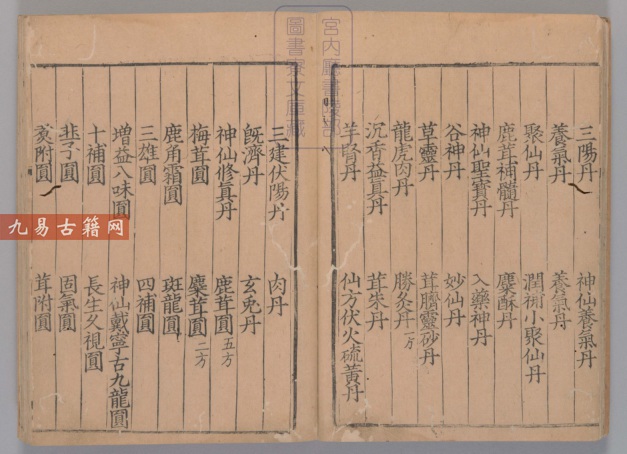 三陽丹 神仙養氣丹
養氣丹 養氣丹
聚仙丹 潤補小聚仙丹
鹿茸補髓丹 麋酥丹
神仙聖寶丹 入藥神丹
谷神丹 妙仙丹
草靈丹 茸朥靈砂丹
龍虎肉丹 勝灸丹一方
沉香益真丹 茸朱丹
羊腎丹 仙方伏火硫黃丹
三建伏陽丹 肉丹
旣濟丹 玄兎丹
神仙修眞丹 鹿茸圓五方
梅茸圓 麋茸圓二方
鹿角霜圓 斑龍圓
三雄圓 四補圓
增益八味圓 神仙戴寧古九龍圓
十補圓 長生久視圓
韭子圓 固氣圓
附圓 茸附圓
宮內廳書陵部
圖書寮文庫藏
九易古籍网